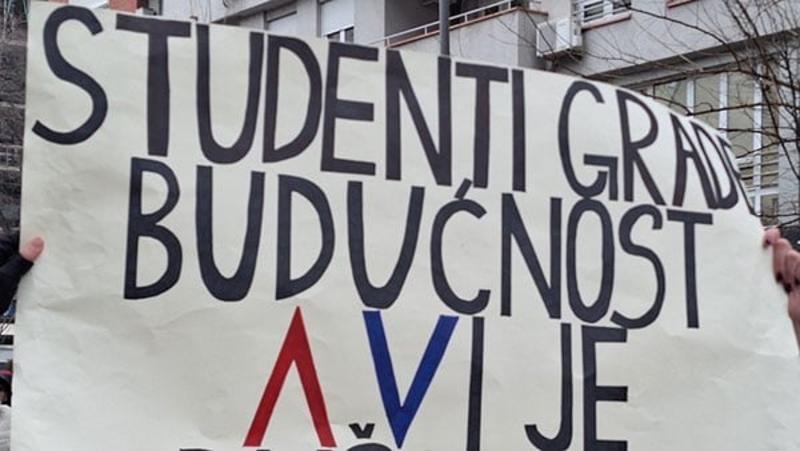 STUDENTI GRADE
BUDUĆNOST
A VI JE